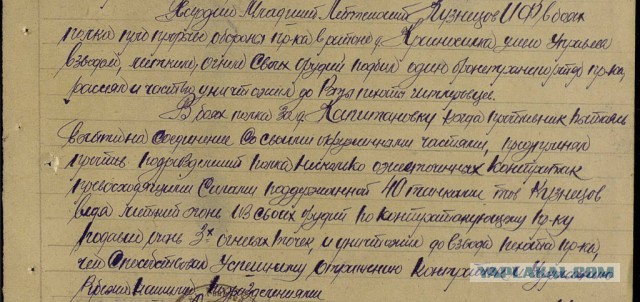 Гвардии Младший Лейтенант Кузнецов И.Ф. в боях
полка при прорыве обороны пр-ка в районе д. умело управляя
взводом, метким огнем своих орудий подбил один бронетранспортер пр-ка,
рассеял и частью уничтожил до роты пехоты гитлеровцев.
В боях полка за д. Капитановку когда противник пытаясь
выйти на соединение со своими окруженными частями, предпринял
против подразделений полка несколько ожесточенных контратак
превосходящими силами поддержанной 40 танками тов. Кузнецов
ведя меткий огонь из своих орудий по контратакующему пр-ку
подавил огонь 3х огневых точек и уничтожил до взвода пехоты пр-ка,
чем способствовал успешному отражению контратаки и
нашими подразделениями
YAPLAKAL.COM